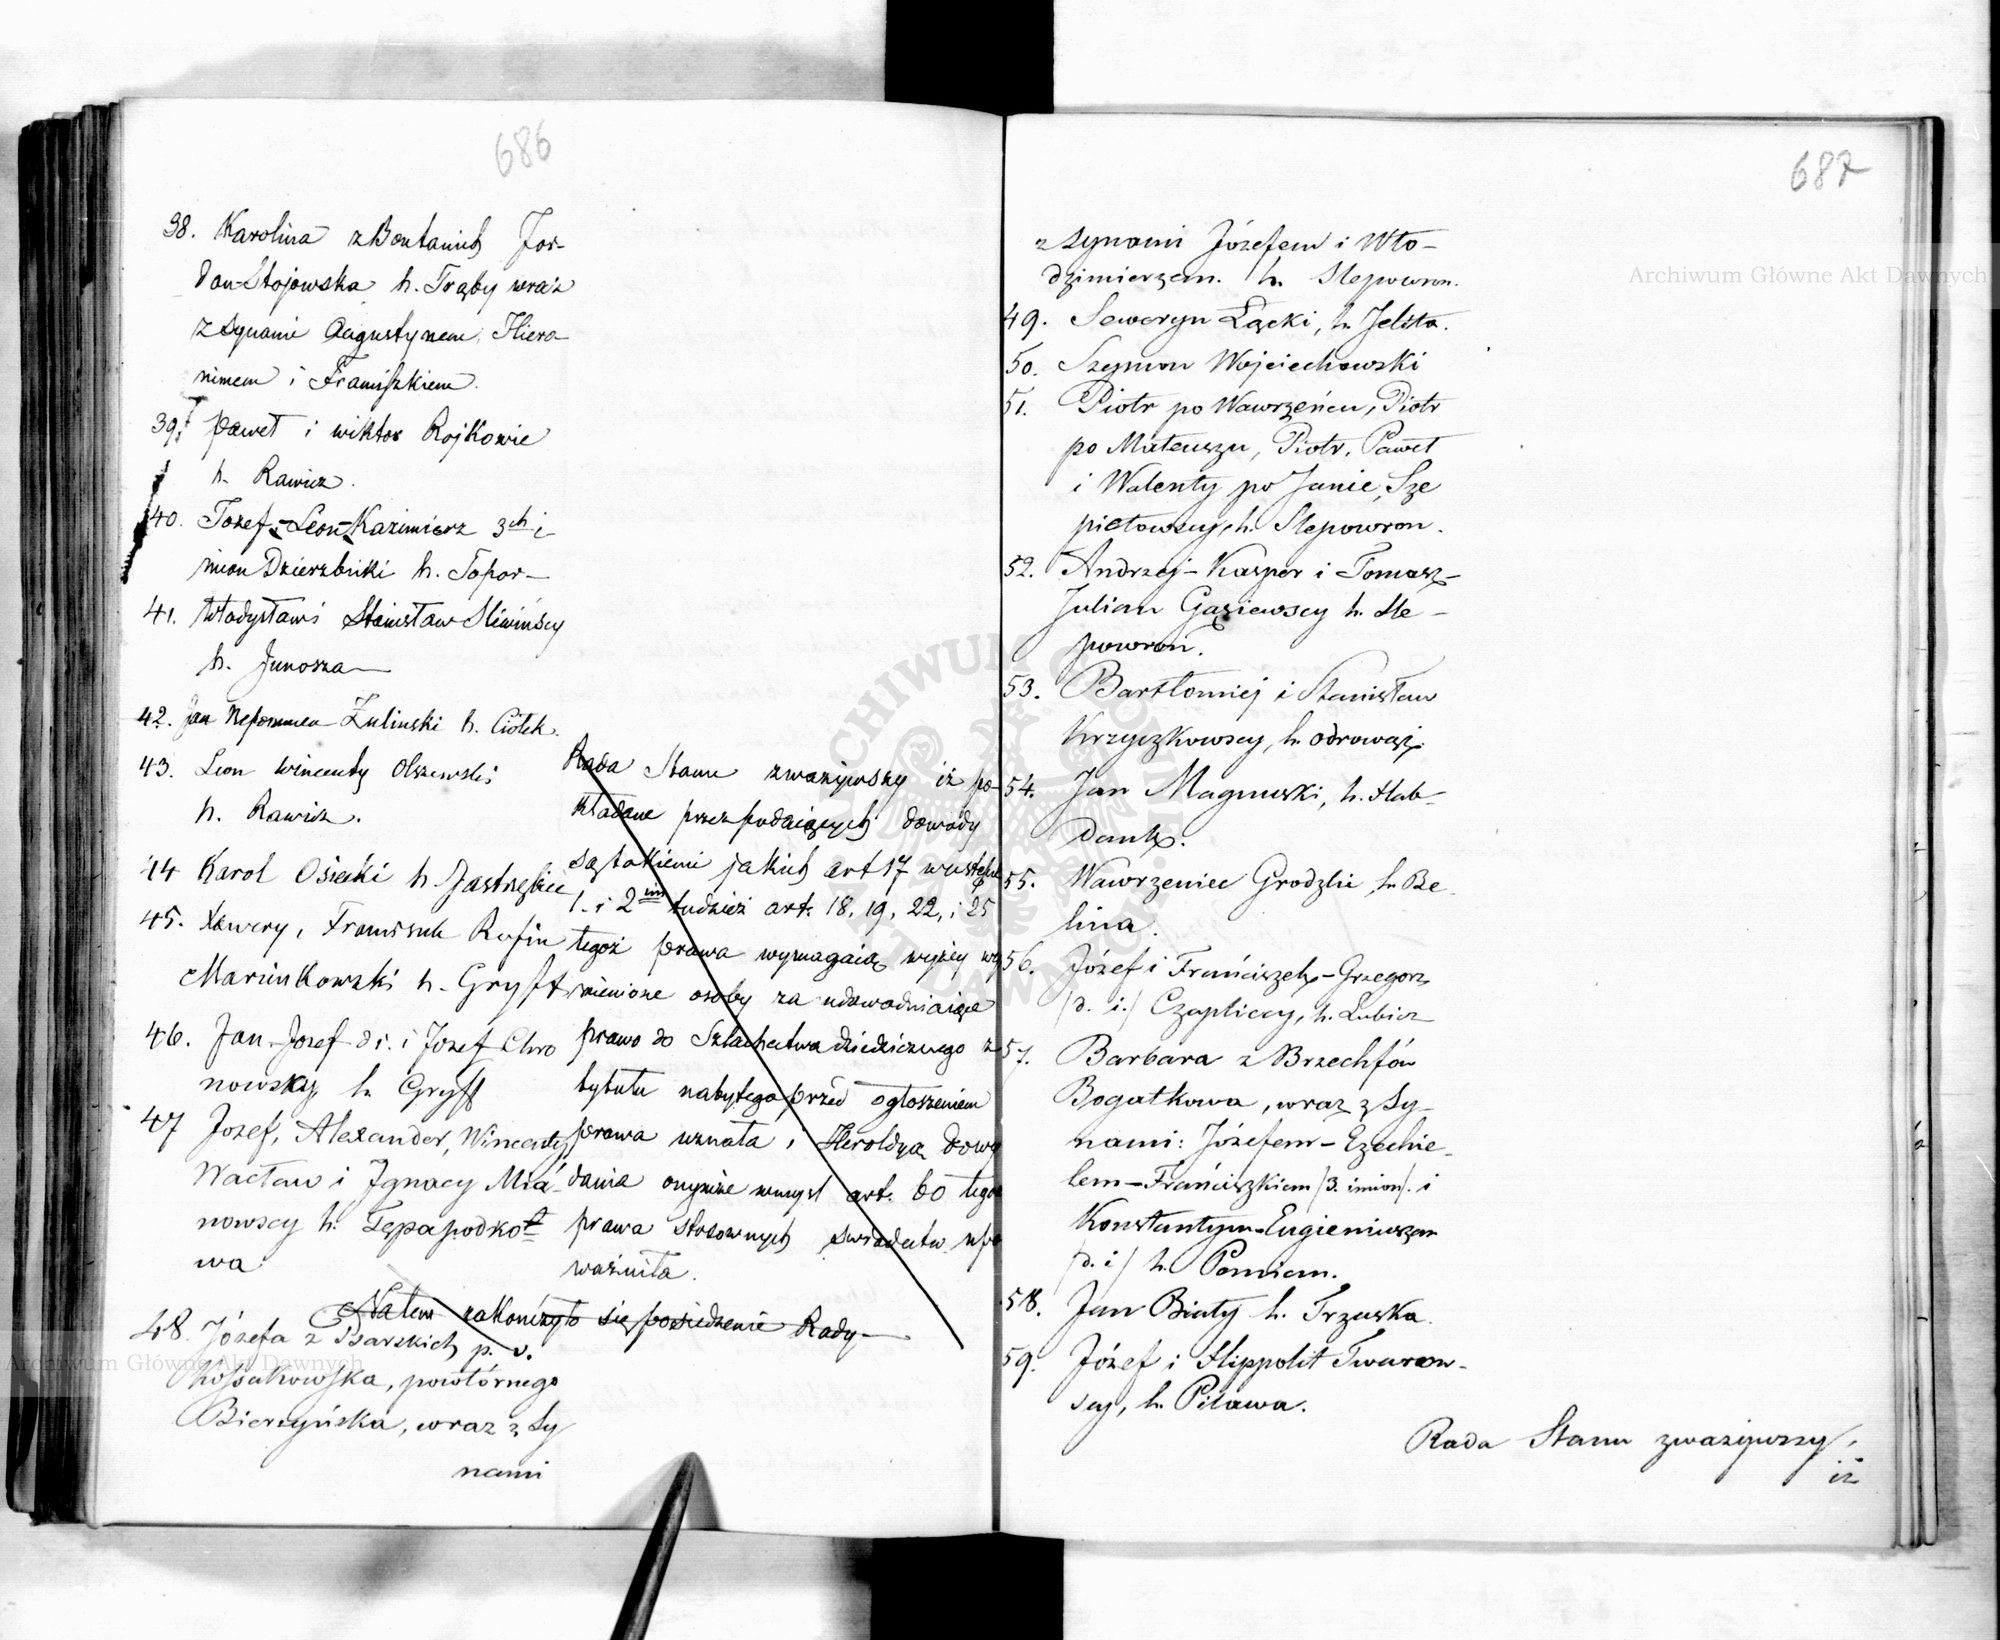 686
38. Karolina z Bontanich Jor-
dan-Stojowska h. Trąby wraz
z synami Augustynem, Hiero
nimem i Franciszkiem.
39. Paweł i Wiktor Rojkowie
h. Rawicz.
40. Józef-Leon-Kazimierz 3ch i
mion Dzierzbicki h. Topor-
41. Władysław i Stanisław Sliwińscy
h. Junosza
42. Jan Nepomucen Zulinski h. Ciołek.
43. Leon Wincenty Olszewski
h. Rawicz.
44 Karol Osiecki h. Jastrzębiec
45. Xawery, Franciszek Rufin
Marcinkowski h. Gryff
46. Jan-Jozef d. i. i Jozef Chro
nowscy, h. Gryff
47 Jozef, Alexander, Wincenty,
Wacław i Ignacy Mia-
nowscy h. Tępapodko
wa
Rada Stanu zważywszy iż po-
kładane przez podających dowody
są takiemi jakich art 17 w ustępie
1. i 2im tudzież art. 18, 19, 22, i 25
tegoż prawa wymagaią wyżey wy
mienione osoby za udowadniaiące
prawo do Szlachectwa dziedzicznego z
tytułu nabytego przed ogłoszeniem
prawa uznała i Heroldyą do wy
dania onymże w myśl art. 60 tegoż
prawa stosownych świadectw upo
ważniła.
Na tem zakończyło się posiedzenie Rady
48. Józefa z Psarskich p. v.
Kossakowska, powtórnego
Bierzyńska, wraz z sy
nami
687
z synami Józefem i Wło-
dzimierzem. h. Slepowron.
49. Seweryn Łącki, h. Jelita.
50. Szymon Wojciechowski
51. Piotr po Wawrzeńcu, Piotr
po Mateuszu, Piotr, Paweł
i Walenty po Janie, Sze
pietowscy, h. Slepowron.
52. Andrzej-Kasper i Tomasz-
Julian Gąsiewscy h. Sle-
powron.
53. Bartłomiej i Stanisław
Krzyczkowscy, h. Odrowąż.
54. Jan Magnuski, h. Hab-
dank.
55. Wawrzeniec Grodzki, h. Be
lina.
56. Józef i Franciszek-Grzegorz
/d. i./ Czapliccy, h. Lubicz
57. Barbara z Brzechfów
Bogatkowa, wraz z Sy-
nami: Józefem-Ezechie-
lem-Franciszkiem /3. imion/. i
Konstantym-Eugieniuszem
/d. i/ h. Pomian.
58. Jan Biały h. Trzaska.
59. Józef i Hippolit Twarow-
scy, h. Pilawa.
Rada Stanu zważywszy,
iż
Archiwum Główne Akt Dawnych
Archiwum Główne Akt Dawnych
ARCHIWUM GŁÓWNE AKT DAWNYCH